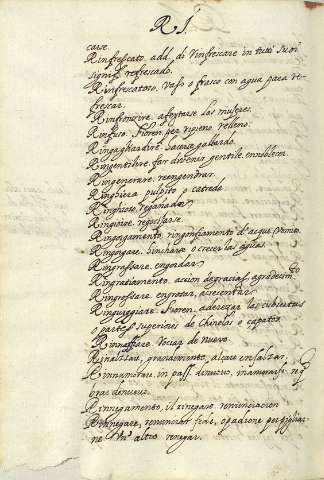 RI.
carse.
Rinfrescato. add. di Rinfrescare in tutti suoi
signif. refrescado.
Rinfrescatoio. Vaso o frasco con agua para re-
frescar.
Rinfronzire. afeytarse las mugeres.
Rinfuso. Fioren. per ripieno relleno.
Ringagliardire. hacerse gallardo.
Ringentilire. far divenir gentile. ennoblecer.
Ringenerare. reengendrar.
Ringhiera. pulpito o catreda
Ringhioso. regañador
Ringioire. regocijarse.
Ringorgamento. ringonfiamento d'acque.
Ringorgare. hincharse o crecer las aguas.
Ringrassare. engordar
Ringratiamento. accion de gracias agradecimto
Ringrossare. engrosar, acrecentar.
Ringuiggiare. Fioren. aderezar las cubiertas
o partes superiores de Chinelas o capatos
de nuevo
Rinalzare, alçar
Rinnamorare. in pass. de nuevo, inamorarsi re-
brar de nuevo.
Rinnegamento, il rinegare. renunciacion
Rinnegare, renunciar fede, o padrone per pigliar-
ne Un' altro renegar.